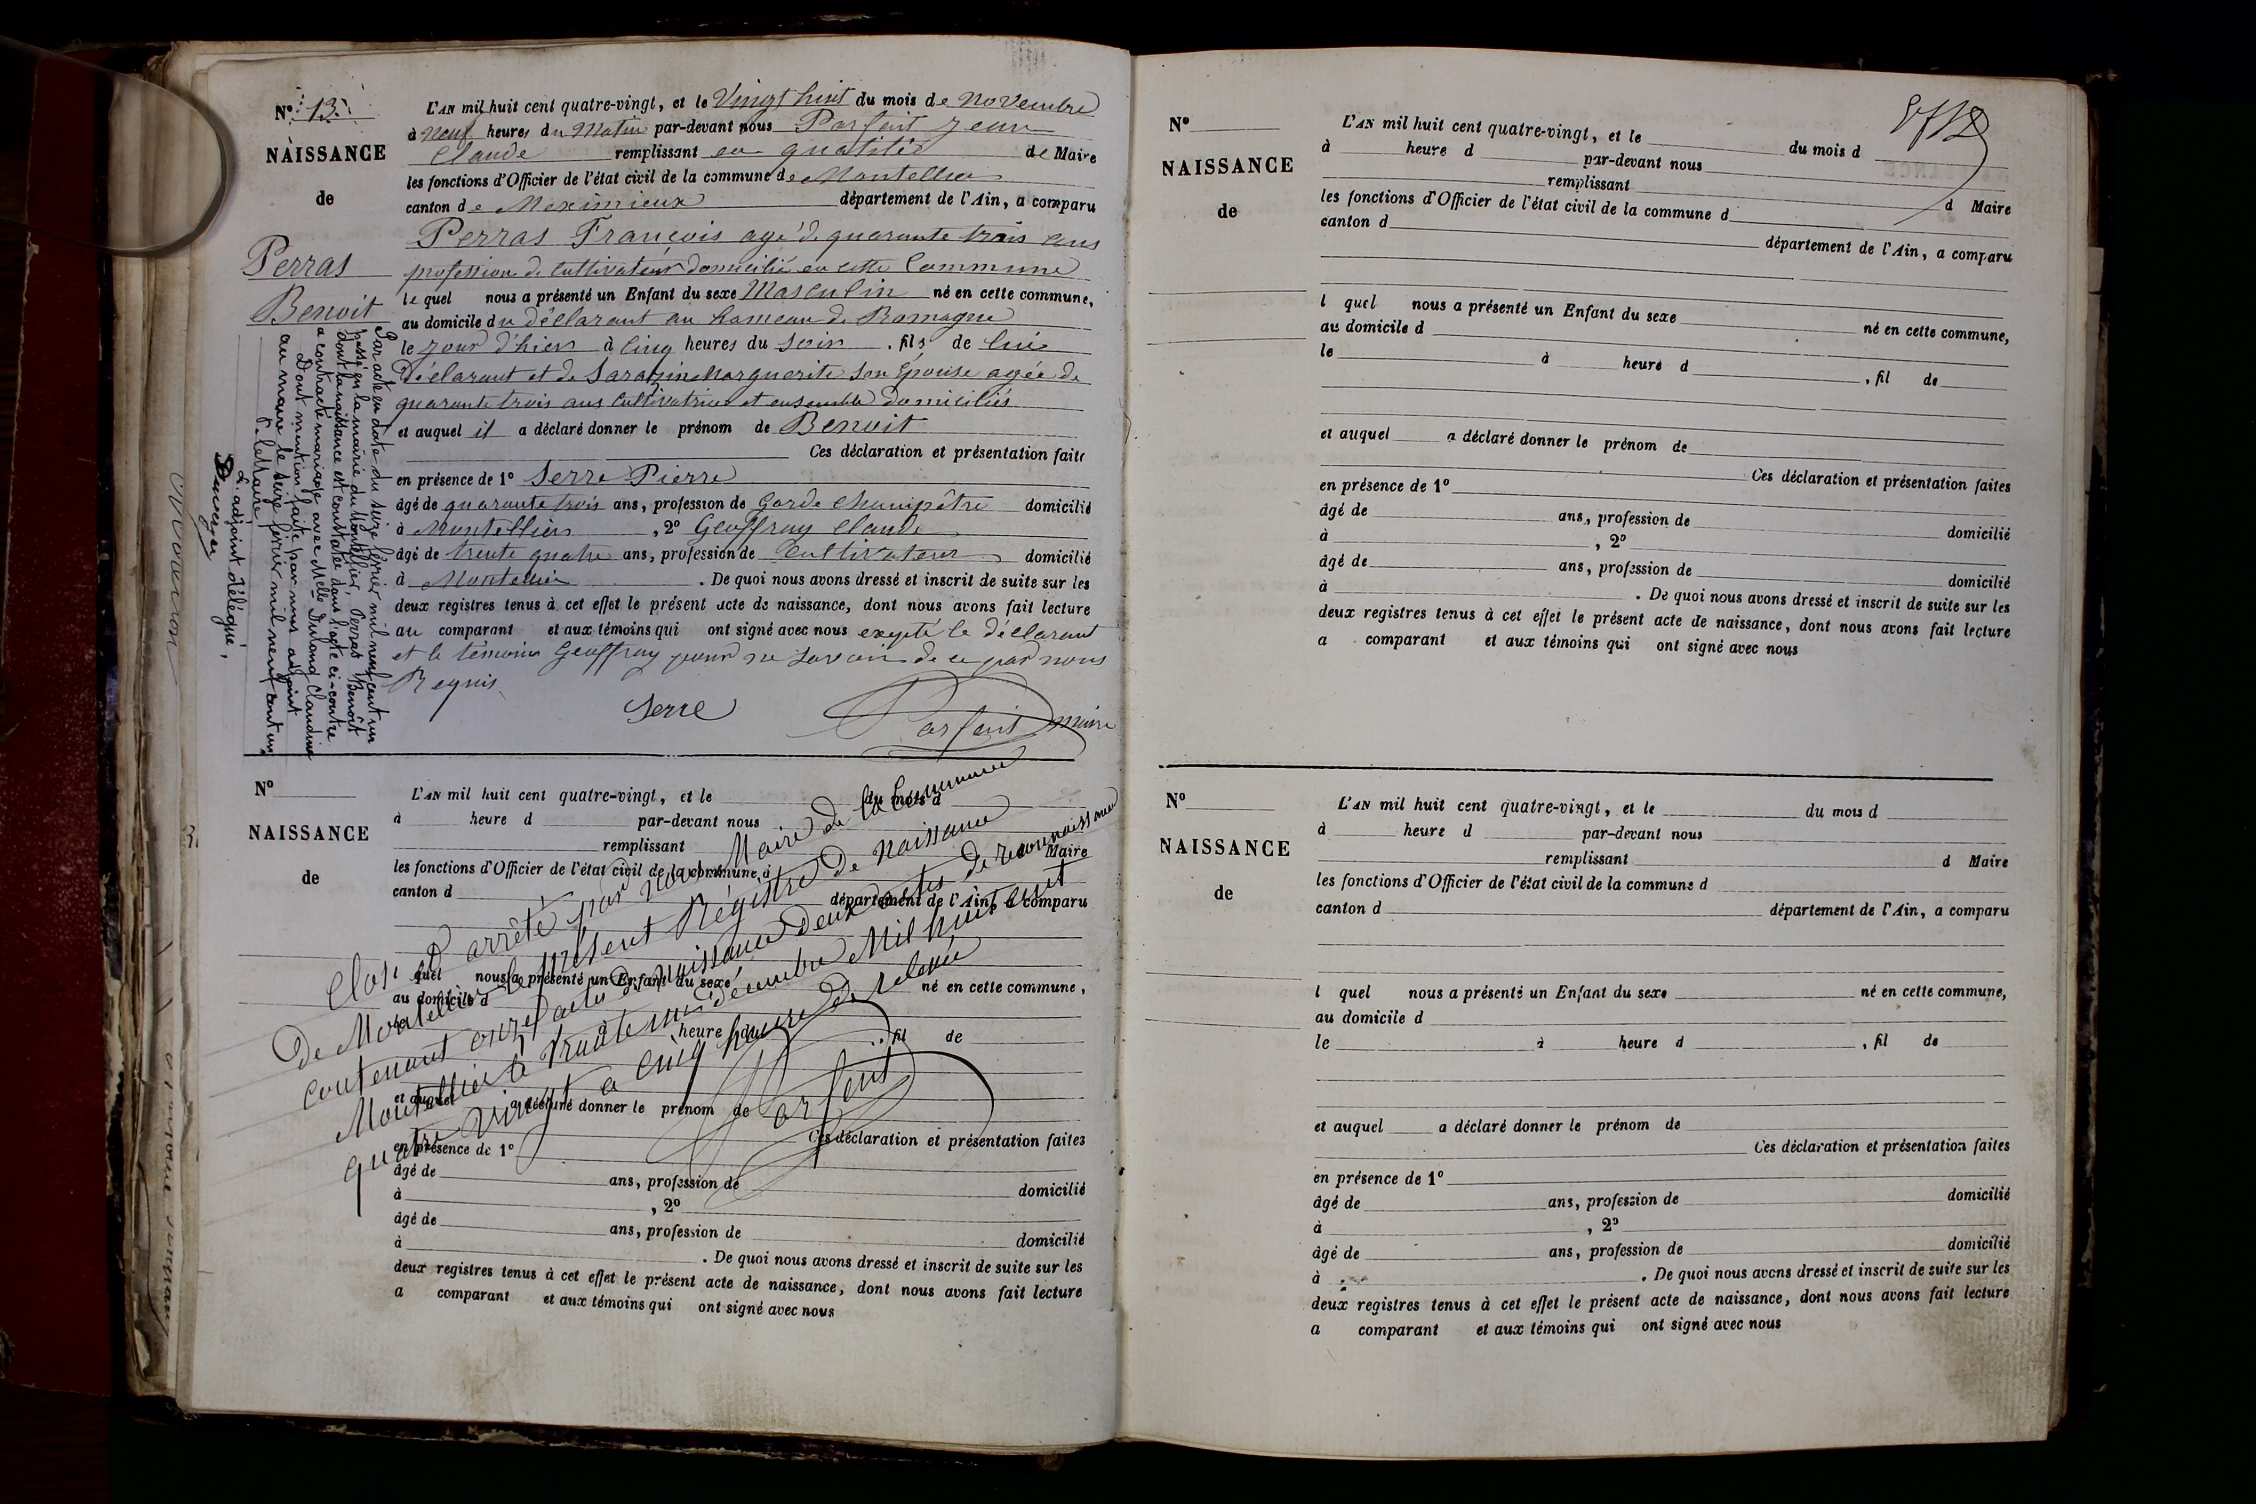 N° 13
NAISSANCE
de
Perras
Benoit
L'AN mil huit cent quatre-vingt, et le Vingt huit du mois de Novembre
à neuf heures du Matin par-devant nous Parfait Jean
Claude remplissant en qualité de Maire
les fonctions d'Officier de l'état civil de la commune de Montellier
canton de Meximieux département de l'Ain, a comparu
Perras François agé de quarante trois ans
profession de Cultivateur domicilié en cette Commune
le quel nous a présenté un Enfant du sexe Masculin né en cette commune,
au domicile du déclarant au hameau de Romagne
le jour d'hier à Cinq heures du soir, fils de lui
Déclarant et de Sarazin Marguerite son Épouse agée de
quarante trois ans Cultivatrice et ensemble domiciliés
et auquel il a déclaré donner le prénom de Benoit
Ces déclaration et présentation faites
en présence de 1° Serre Pierre
âgé de quarante trois ans, profession de Garde champêtre domicilié
à Montellier, 2° Geoffray Claude
âgé de trente quatre ans, profession de Cultivateur domicilié
à Montellier. De quoi nous avons dressé et inscrit de suite sur les
deux registres tenus à cet effet le présent acte de naissance, dont nous avons fait lecture
au comparant et aux témoins qui ont signé avec nous excepté le déclarant
et le témoin Geoffray pour ne savoir de ce par nous
Requis
Serre
Parfait maire
Par acte en date du seize février mil neuf cent un
passé en la mairie du Montellier, Perras Benoît
dont la naissance est constatée dans l'acte ci-contre
a contracté mariage avec Melle Dulong Claudine
Dont mention faite par nous adjoint
au maire le seize février mil neuf cent un,
P. le Maire
L'adjoint délégué,
N°
NAISSANCE
de
L'AN mil huit cent quatre-vingt, et le du mois d
à heure d par-devant nous
remplissant Maire
les fonctions d'Officier de l'état civil de la commune d
canton d département de l'Ain, a comparu
quel nous a présenté un Enfant du sexe né en cette commune,
au domicile d
le heure d, fil de
et auquel a déclaré donner le prénom de
Ces déclaration et présentation faites
en présence de 1°
âgé de ans, profession de domicilié
à , 2°
âgé de ans, profession de domicilié
à . De quoi nous avons dressé et inscrit de suite sur les
deux registres tenus à cet effet le présent acte de naissance, dont nous avons fait lecture
a comparant et aux témoins qui ont signé avec nous
Clos et arrêté par nous Maire de la Commune
De Montellier le présent Régistre de Naissance
contenant onze actes de naissance deux actes de reconnaissance
Montellier le trente un décembre Mil huit cent
quatre vingt a cinq heure de relevée
Parfait
N°
NAISSANCE
de
L'AN mil huit cent quatre-vingt, et le du mois d
à heure d par-devant nous
remplissant d Maire
les fonctions d'Officier de l'état civil de la commune d
canton d département de l'Ain, a comparu
l quel nous a présenté un Enfant du sexe né en cette commune,
au domicile d
le à heure d , fil de
et auquel a déclaré donner le prénom de
Ces déclaration et présentation faites
en présence de 1°
âgé de ans, profession de domicilié
à , 2°
âgé de ans, profession de domicilié
à . De quoi nous avons dressé et inscrit de suite sur les
deux registres tenus à cet effet le présent acte de naissance, dont nous avons fait lecture
a comparant et aux témoins qui ont signé avec nous
N°
NAISSANCE
de
L'AN mil huit cent quatre-vingt, et le du mois d
à heure d par-devant nous
remplissant d Maire
les fonctions d'Officier de l'état civil de la commune d
canton d département de l'Ain, a comparu
l quel nous a présenté un Enfant du sexe né en cette commune,
au domicile d
le à heure d , fil de
et auquel a déclaré donner le prénom de
Ces déclaration et présentation faites
en présence de 1°
âgé de ans, profession de domicilié
à , 2°
âgé de ans, profession de domicilié
à . De quoi nous avons dressé et inscrit de suite sur les
deux registres tenus à cet effet le présent acte de naissance, dont nous avons fait lecture
a comparant et aux témoins qui ont signé avec nous